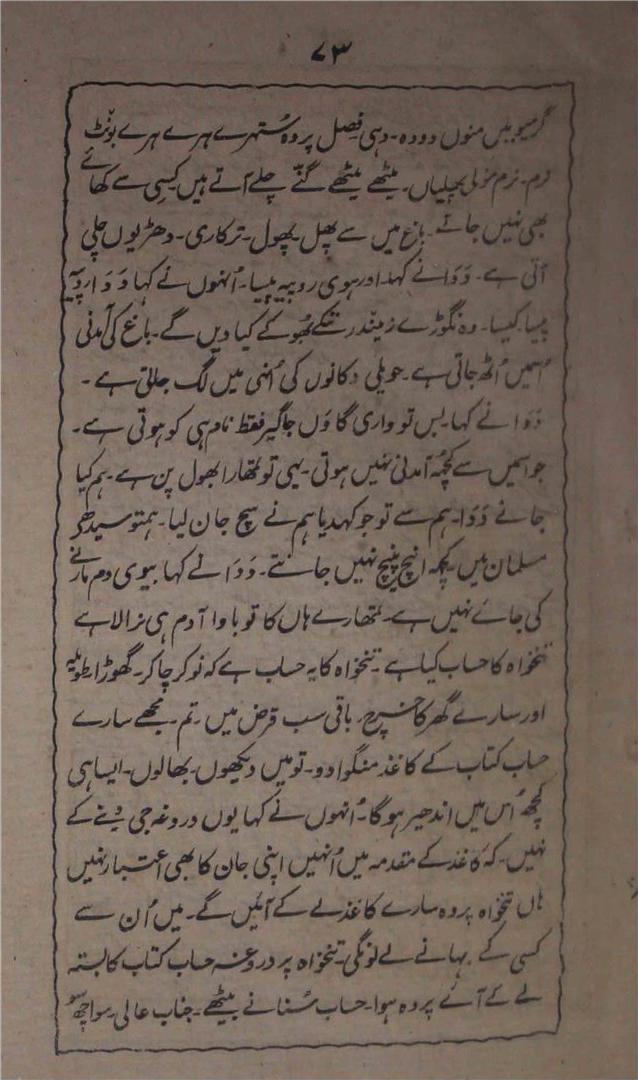 ۷۳
گرمیومیں منوں دودہ۔ دہی فصل پر وہ ستہرے ہرے ہرے بونٹ
نرم۔ نرم مولی پہلیاں۔ میٹھے میٹھے گنے چلے آتے ہیں کسِی سے کھائے
بھی نہیں جاتے۔ باغ میں سے پھل۔ پھول۔ ترکاری۔ دھڑیوں چلی
آتی ہے۔ دَدَا نے کہا۔ اور بیوی روپیہ پیسا۔ اُنہوں نے کہا دَدَا روپیہ
پیسا کیسا۔ وہ نگوڑے زمیندر ننگے بُھوکے کیا دیں گے۔ باغ کی آمدنی
اُسمیں اُٹھ جاتی ہے۔ حویلی دکانوں کی اُنہی میں لگ جاتی ہے۔
دَدَا نے کہا۔ بس تو واری گاوٗں جاگیر فقط نام ہی کو ہوتی ہے۔
جو اسمیں سے کچُہ آمدنی نہیں ہوتی۔ یہی تو تمھارا بھول پن ہے۔ ہم کیا
جانے دَدَا۔ ہم سے تو جو کہدیا ہم نے سچ جان لیا۔ ہمتو سیدھے
مسلمان ہیں۔ کچہ اینچ پینچ نہیں جانتے۔ دَدَا نے کہا بیوی دم مارنے
کی جائے نہیں ہے۔ تمھارے ہاں کا تو باوا آدم ہی نرالا ہے
تنخواہ کا حساب کیا ہے۔ تنخواہ کا یہ حساب ہے کہ نوکر چاکر۔ گھوڑا طویلہ
اور سارے گھر کا خرچ۔ باقی سب قرض میں۔ تم۔ مجھے سارے
حساب کتاب کے کاغذ منگوا دو۔ تو میں دیکھوں۔ بھالوں۔ ایسا ہی
کچھ اُس میں اندھیر ہو گا۔ اُنہوں نے کہا یوں دروغہ جی دینے کے
نہیں۔ کہ کاغذ کے مقدمہ میں اُنہیں اپنی جان کا بھی اعتبار نہیں
ہاں تنخواہ پر وہ سارے کاغذ لے کے آئیں گے۔ میں اُن سے
کسی کے بہانے لے لونگی۔ تنخواہ پر دروغہ حساب کتاب کا بستہ
لے کے آئے پردہ ہوا۔ حساب سُنانے بیٹھے۔ جناب عالی۔